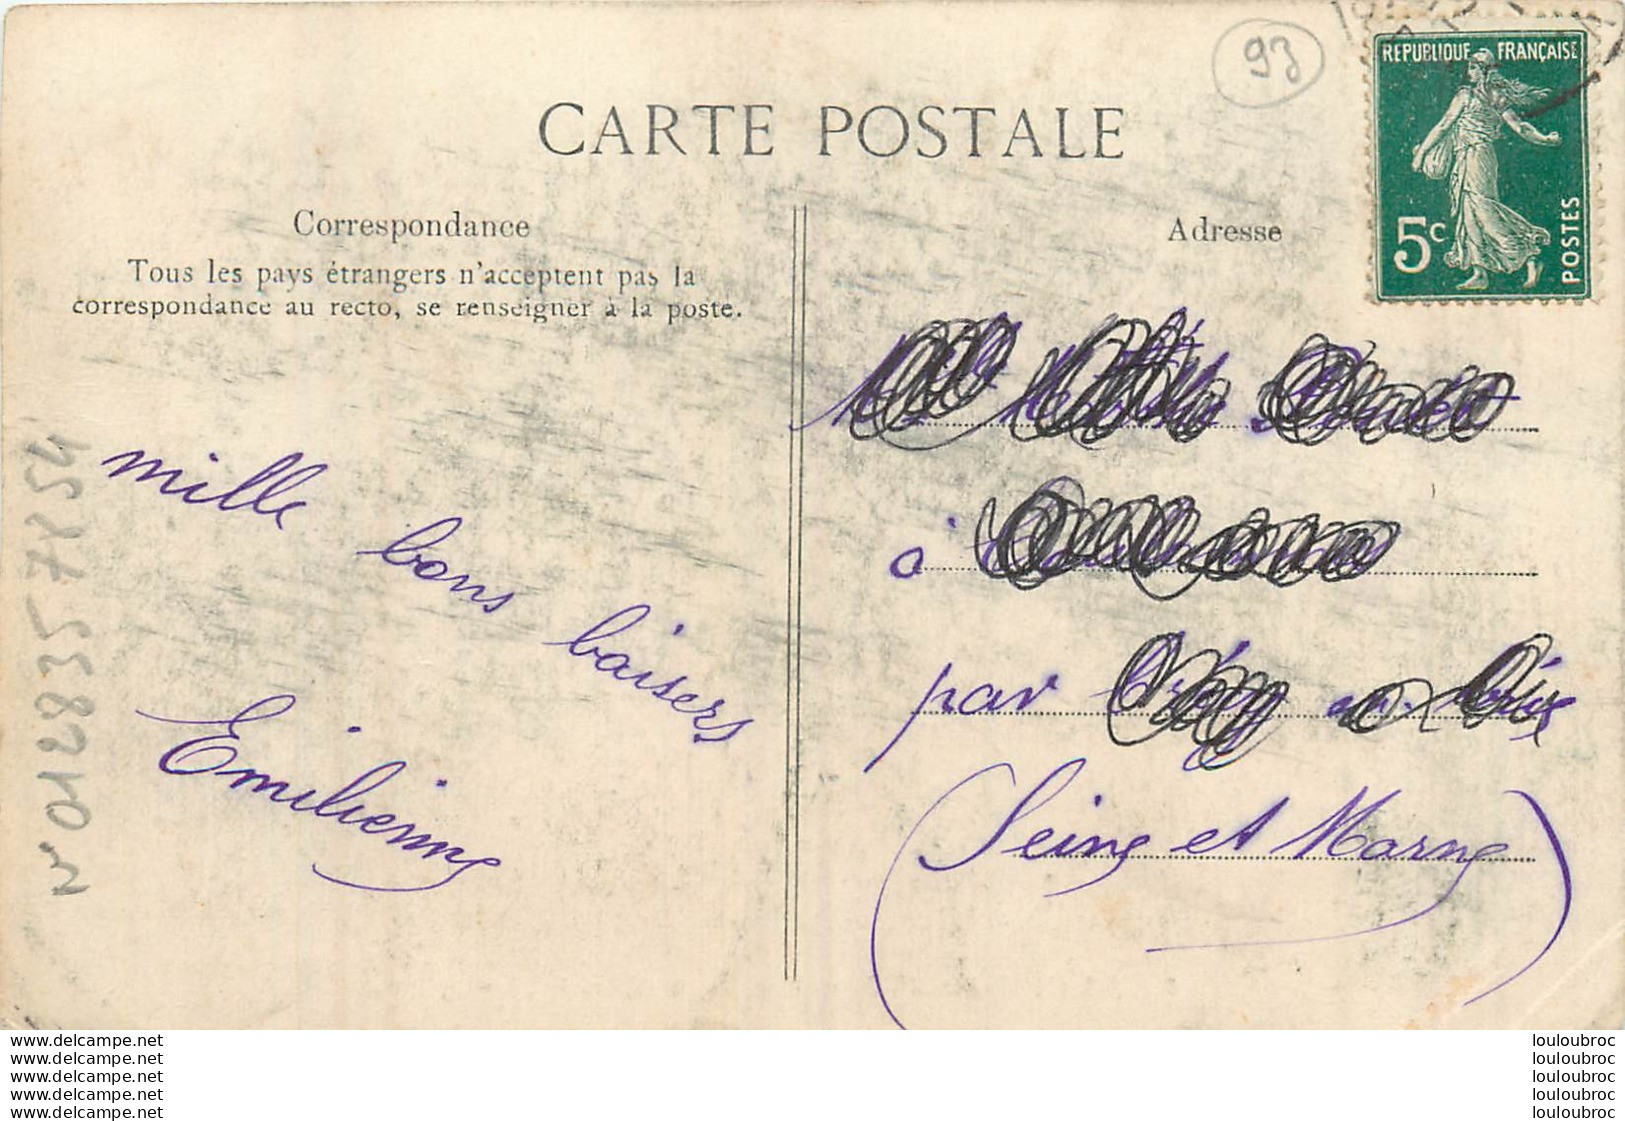 93
CARTE POSTALE
REPUBLIQUE FRANÇAISE
5c
POSTES
Correspondance
Tous les pays étrangers n'acceptent pas la
correspondance au recto, se renseigner à la poste.
mille bons baisers
Emilienne
N° 012835 7854
Adresse
à
par
(Seine et Marne)
www.delcampe.net
www.delcampe.net
www.delcampe.net
www.delcampe.net
www.delcampe.net
louloubroc
louloubroc
louloubroc
louloubroc
louloubroc